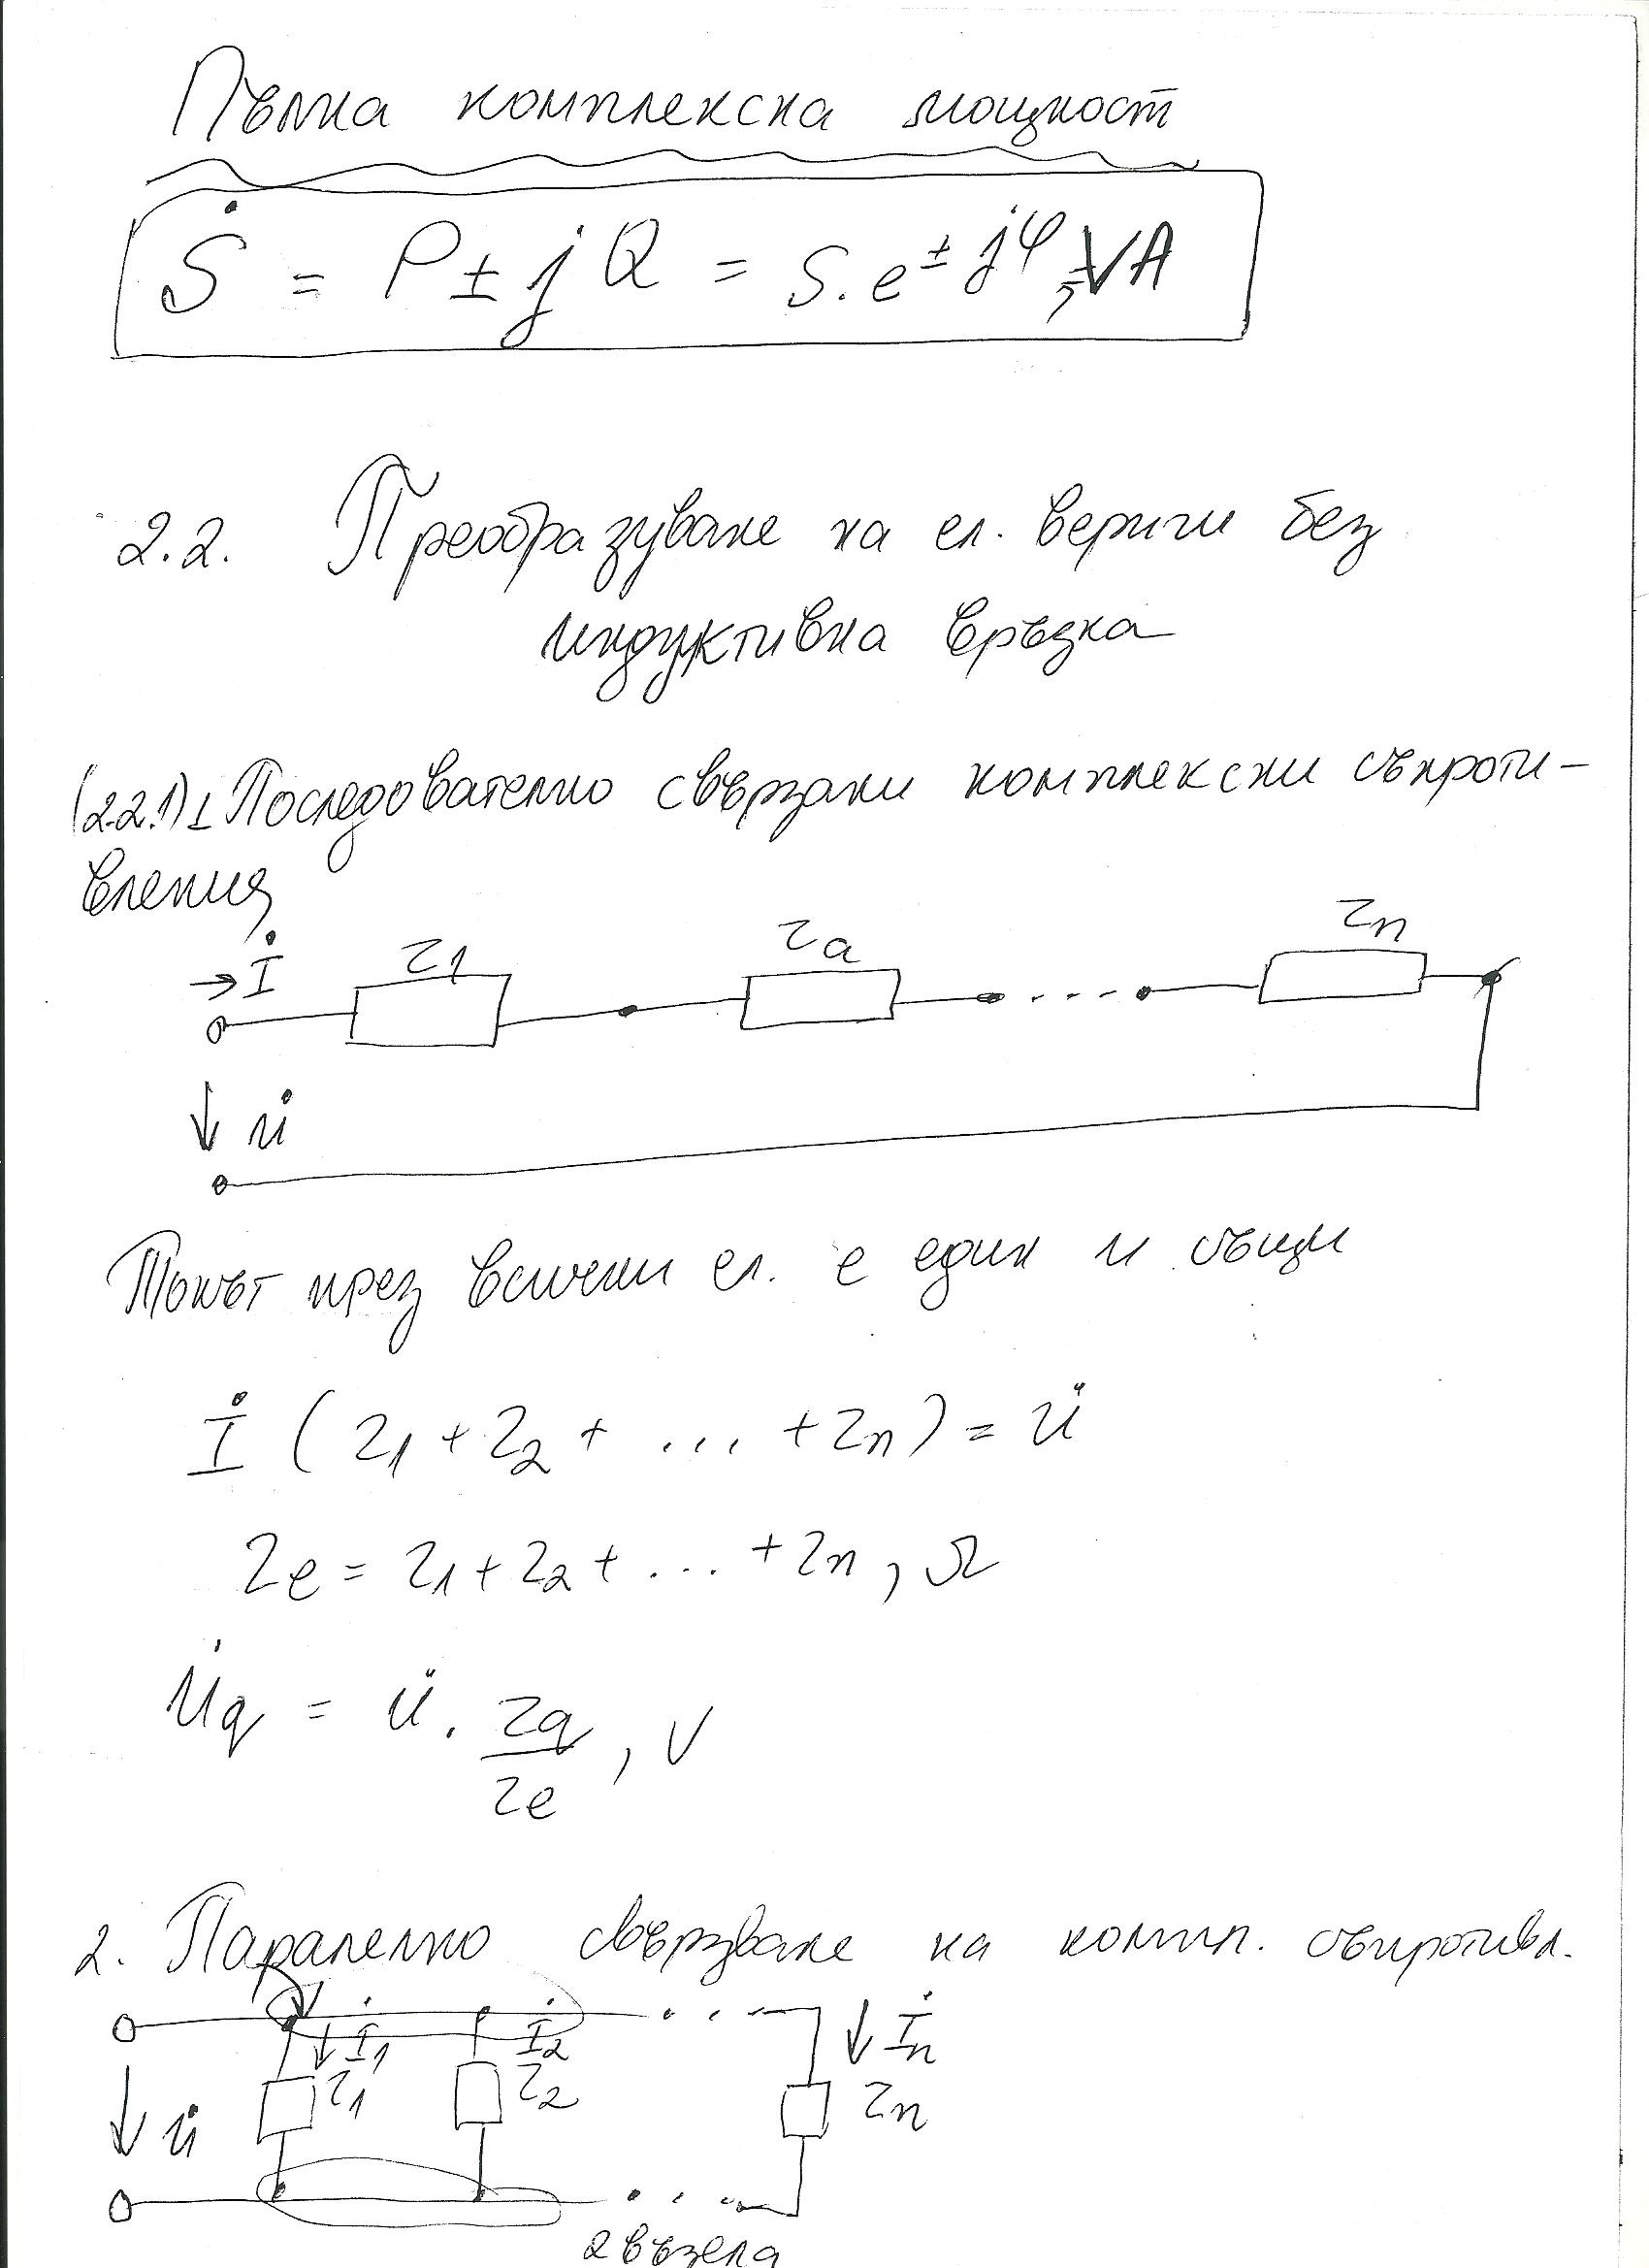 Пълна комплексна мощност
Ṡ = P ± jQ = S.e^(±jφ), VA
2.2. Преобразуване на ел. вериги без
индуктивна връзка
(2.2.1) 1. Последователно свързани комплексни съпроти-
вления
→ İ Z1 Z2 Zn
↓ U̇
Токът през всички ел. е един и същи
İ (Z1 + Z2 + ... + Zn) = U̇
Ze = Z1 + Z2 + ... + Zn, Ω
U̇q = U̇ . Zq/Ze, V
2. Паралелно свързване на компл. съпротивл.
↓ İ1 İ2 ↓ İn
Z1 Z2 Zn
↓ U̇
2 възела